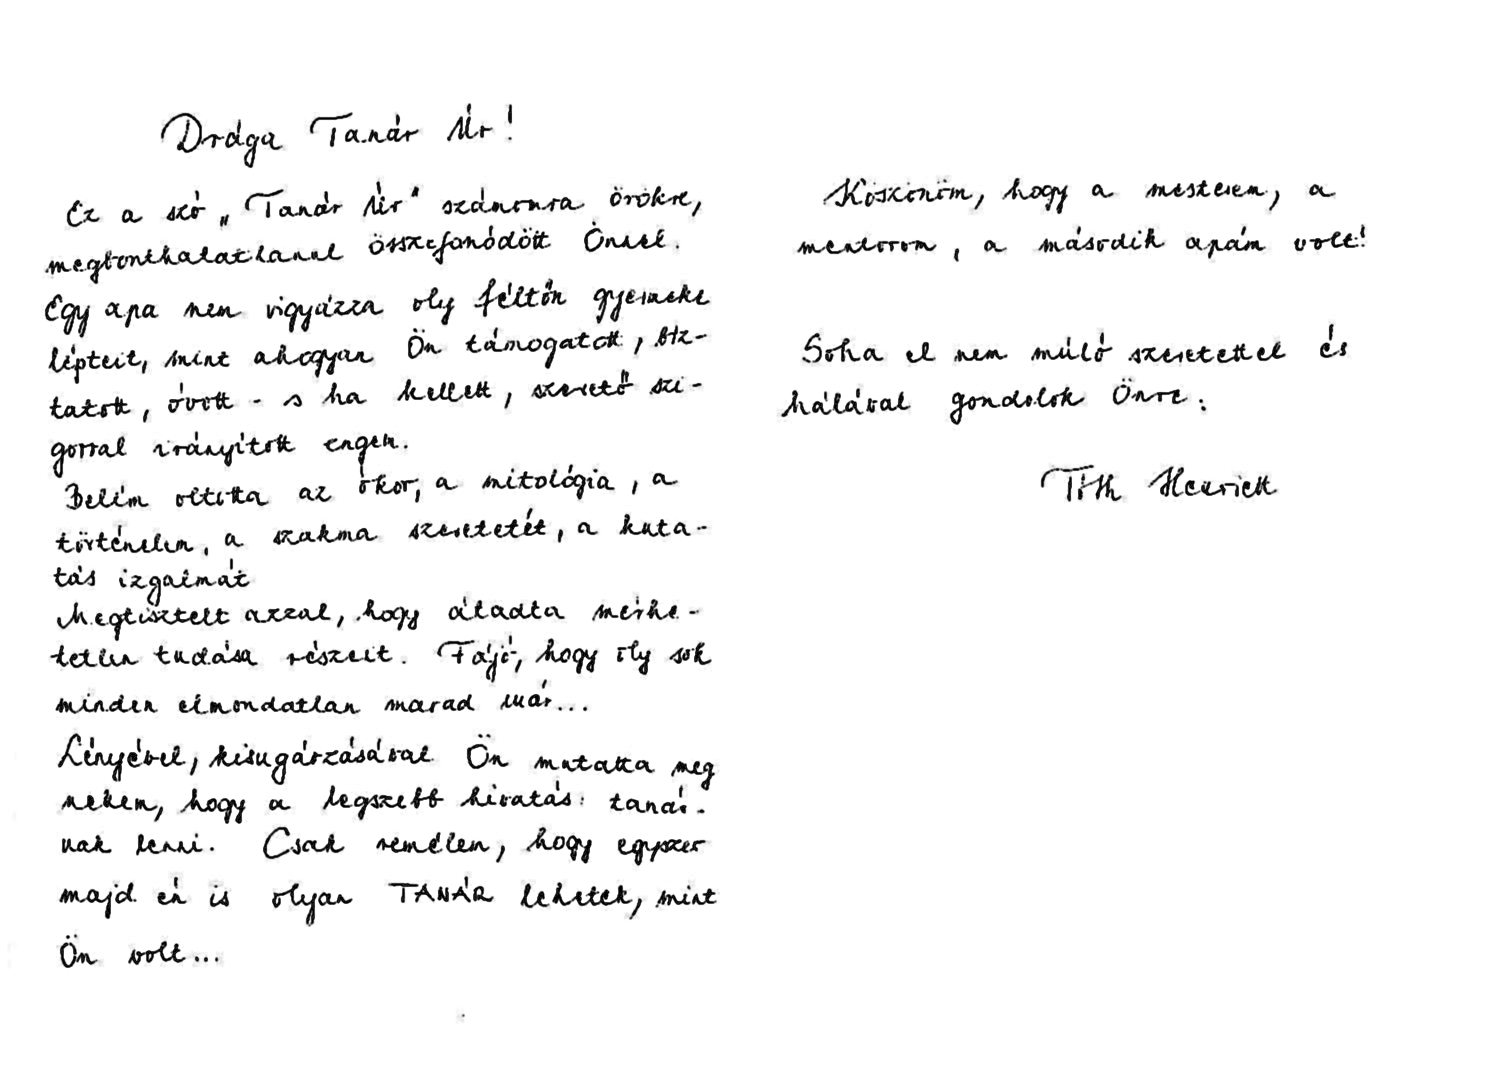 Drága Tanár Úr!
Ez a szó „Tanár Úr" számomra örökre,
megbonthatatlanul összefonódott Önnel.
Egy apa nem vigyázza oly féltőn gyermeke
lépteit, mint ahogyan Ön támogatott, biz-
tatott, óvott - s ha kellett, szerető szi-
gorral irányított engem.
Belém oltotta az ókor, a mitológia, a
történelem, a szakma szeretetét, a kuta-
tás izgalmát
Megtisztelt azzal, hogy átadta mérhe-
tetlen tudása részeit. Fájó, hogy oly sok
minden elmondatlan marad már...
Lényével, kisugárzásával Ön mutatta meg
nekem, hogy a legszebb hivatás: tanár-
nak lenni. Csak remélem, hogy egyszer
majd én is olyan TANÁR lehetek, mint
Ön volt...
Köszönöm, hogy a mesterem, a
mentorom, a második apám volt!
Soha el nem múló szeretettel és
hálával gondolok Önre:
Tóth Henriett